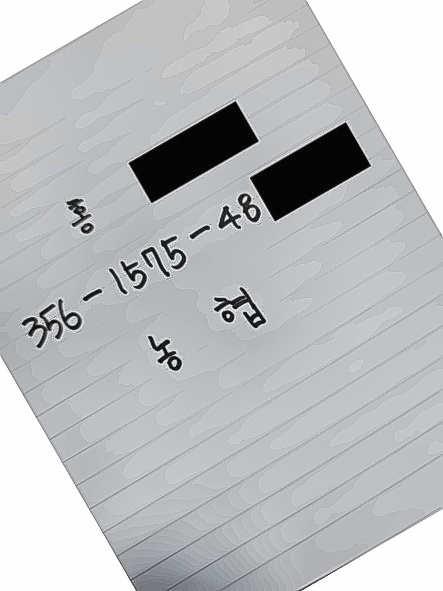 홍
356-1575-48
농 협